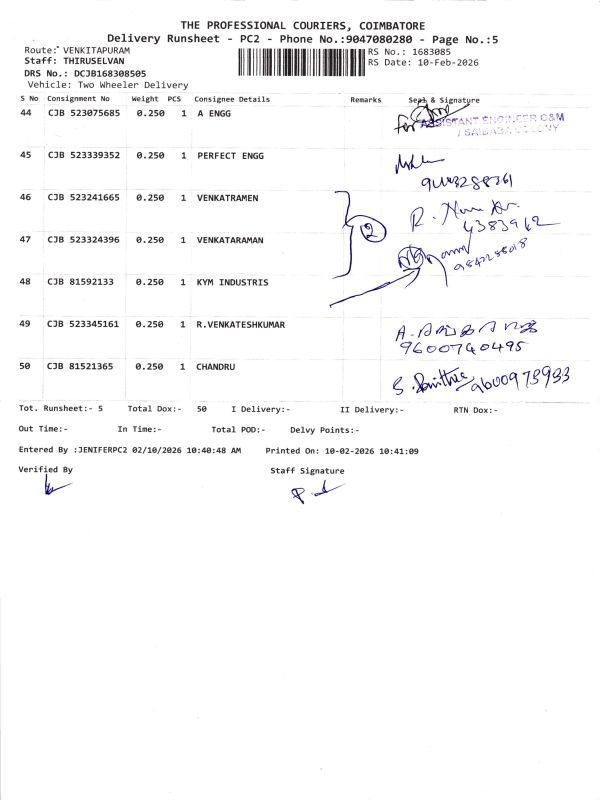 THE PROFESSIONAL COURIERS, COIMBATORE
Delivery Runsheet - PC2 - Phone No.:9047080280 - Page No.:5
Route: VENKITAPURAM RS No.: 1683085
Staff: THIRUSELVAN RS Date: 10-Feb-2026
DRS No.: DCJB168308505
Vehicle: Two Wheeler Delivery
S No Consignment No Weight PCS Consignee Details Remarks Seal & Signature
44 CJB 523075685 0.250 1 A ENGG for
ASSISTANT ENGINEER O&M
/ SAIBABA COLONY
45 CJB 523339352 0.250 1 PERFECT ENGG
46 CJB 523241665 0.250 1 VENKATRAMEN
2
47 CJB 523324396 0.250 1 VENKATARAMAN
48 CJB 81592133 0.250 1 KYM INDUSTRIS
49 CJB 523345161 0.250 1 R.VENKATESHKUMAR
9600740495
50 CJB 81521365 0.250 1 CHANDRU
9600973933
Tot. Runsheet:- 5 Total Dox:- 50 I Delivery:- II Delivery:- RTN Dox:-
Out Time:- In Time:- Total POD:- Delvy Points:-
Entered By :JENIFERPC2 02/10/2026 10:40:48 AM Printed On: 10-02-2026 10:41:09
Verified By Staff Signature